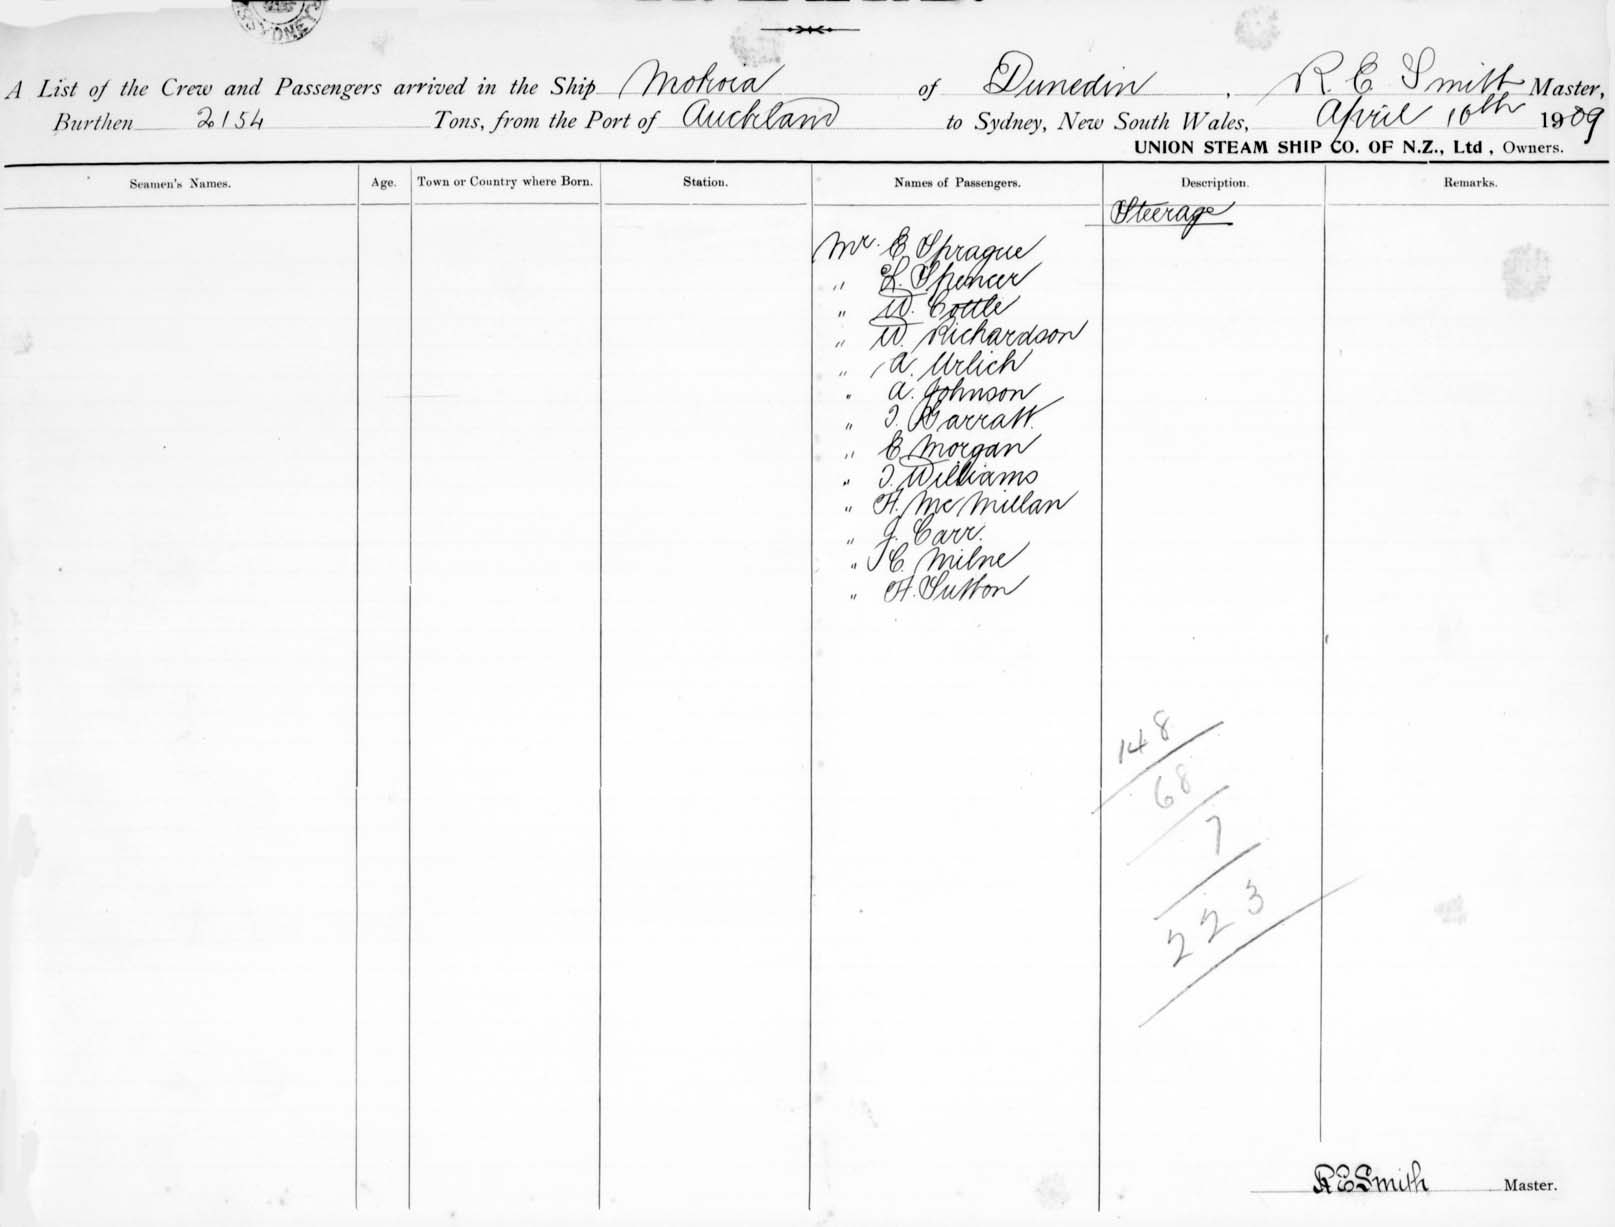 SYDNEY
A List of the Crew and Passengers arrived in the Ship Mokoia of Dunedin, R. E Smith Master,
Burthen 2154 Tons, from the Port of Auckland to Sydney, New South Wales, April 10th 1909
UNION STEAM SHIP CO. OF N.Z., Ltd., Owners.
Seamen's Names. Age. Town or Country where Born. Station. Names of Passengers. Description. Remarks.
Steerage
Mr. E Sprague
" L. Spencer
" W. Cottle
" W. Richardson
" A. Urlich
" A. Johnson
" T. Garratt
" E Morgan
" T. Williams
" H. McMillan
" J. Carr.
" C. Milne
" H. Sutton
148
68
7
223
R E Smith Master.